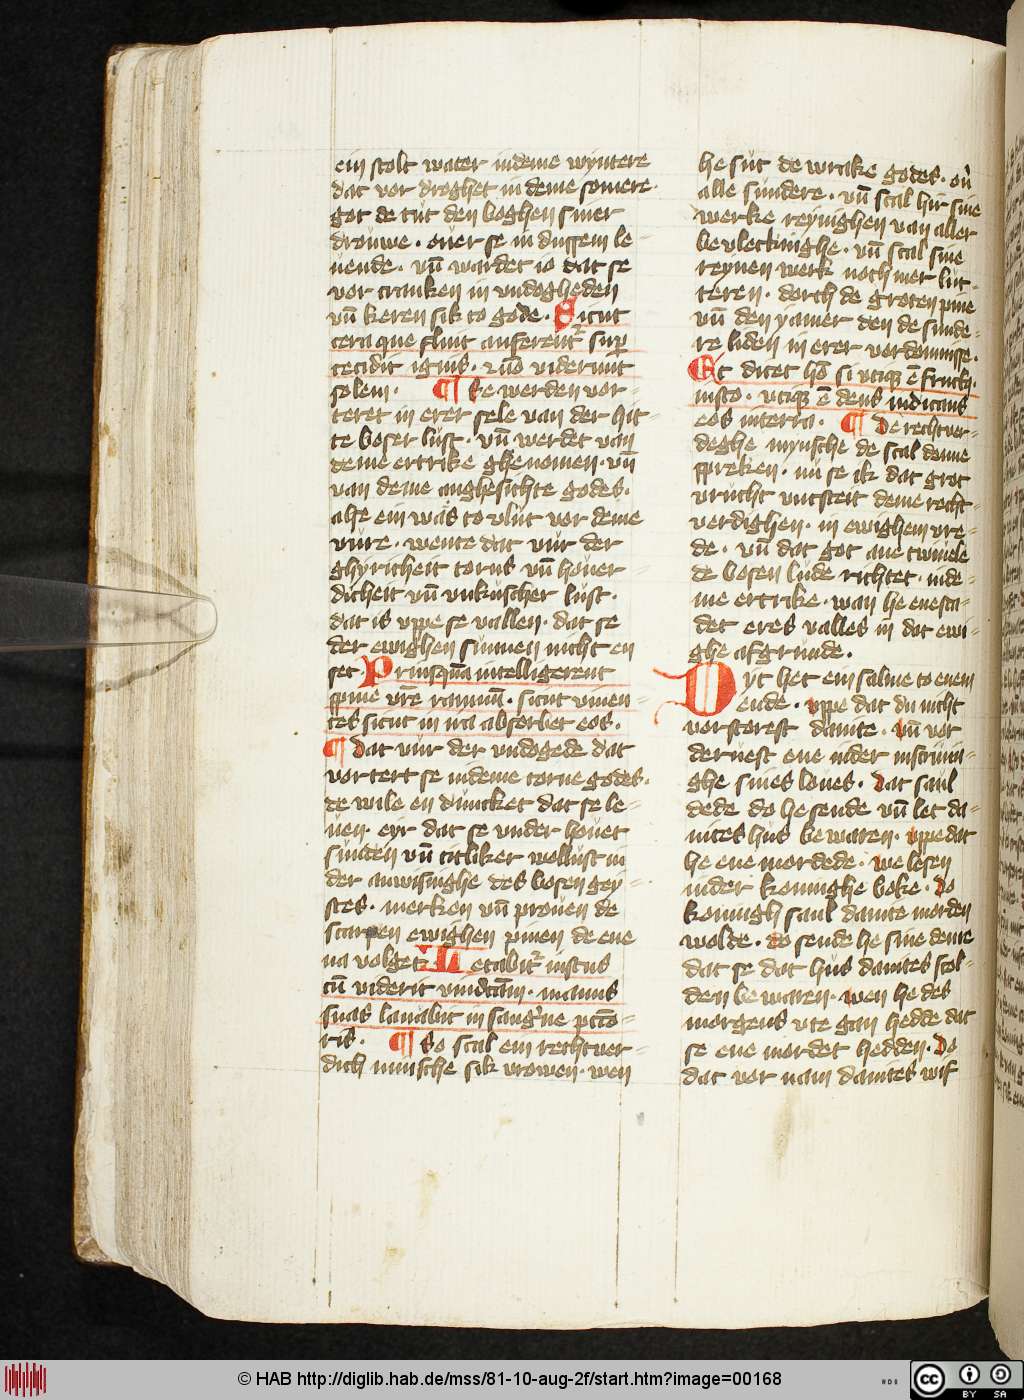 ein stolt water indeme wyntere
dat vor droghet in deme somere.
got de tut den boghen siner
drouwe. ouer se in dussem le-
uende. vn̄ wardet io dat se
vor cranken in vndogheden
vn̄ keren sik to gode. Sicut
cera que fluit auferent᷑ sup
cecidit ignis. ⁊ nō viderunt
solem. ¶ Se werden vor-
teret in erer sele van der hit-
te boser lust. vn̄ werdet van
deme ertrike ghenomen. vn̄
van deme anghesichte godes.
alze ein was to vlut vor deme
vure. wente dat vur der
ghyricheit torns vn̄ houer-
dicheit vn̄ vnkuscher lust.
dat is vppe se vallen. dat se
der ewighen sunnen nicht en
set. Priusqua intelligerent
spine vr̄e ramnū. sicut viuen-
tes sicut in ira absorbet eos.
¶ Dat vur der vndogede dat
vortert se indeme torne godes.
de wile en duncket dat se le-
uen. eyr dat se vnder houet
sunden vn̄ titliker wollust in
der anwisinghe des bosen gey-
stes. merken vn̄ prouen de
scarpen ewighen pinen de ene
na volget. Letabit᷑ iustus
cū viderit vindcām. manus
suas lauabit in sangͥne pctō-
ris. ¶ So scal ein rechtver-
dich minsche sik vrowen. wen
he sut de wrake godes. ou
alle sundere. vn̄ scal hir sine
werke reynighen van aller
bevleckinghe. vn̄ scal sine
reynen werk noch mer lut-
teren. dorch de groten pine
vn̄ den yamer den de sunde-
re liden in erer vordomnisse.
Et dicet hō si vtiqꝫ ē fructꝰ
iusto. vtiqꝫ ē deus iudicans
eos interra. ¶ De rechtver-
deghe mynsche de scal denne
spreken. nu se ik dat grot
vrucht vntsteit deme recht-
verdighen. in ewighem vre-
de. vn̄ dat got ane twiuele
de bosen lude richtet. inde-
me ertrike. wan he enesta-
det eres valles in dat ewi-
ghe afgrunde.
Dyt het ein salme to enem
ende. vppe dat du nicht
vorstorest dauite. vn̄ vor
dernest ene in der instrun-
ghe sines loues. Dat saul
dede do he sende vn̄ let da-
uites hus bewaren. vppe dat
he ene mordede. we lesen
in der koninghe boke. Do
koningh saul dauite morden
wolde. do sende he sine deme
dat se dat hus dauites scol-
den bewaren. wen he des
morgens vte gan hedde dat
se ene mordet hedden. Do
dat vor nam dauites wif
© HAB http://diglib.hab.de/mss/81-10-aug-2f/start.htm?image=00168
cc
BY SA